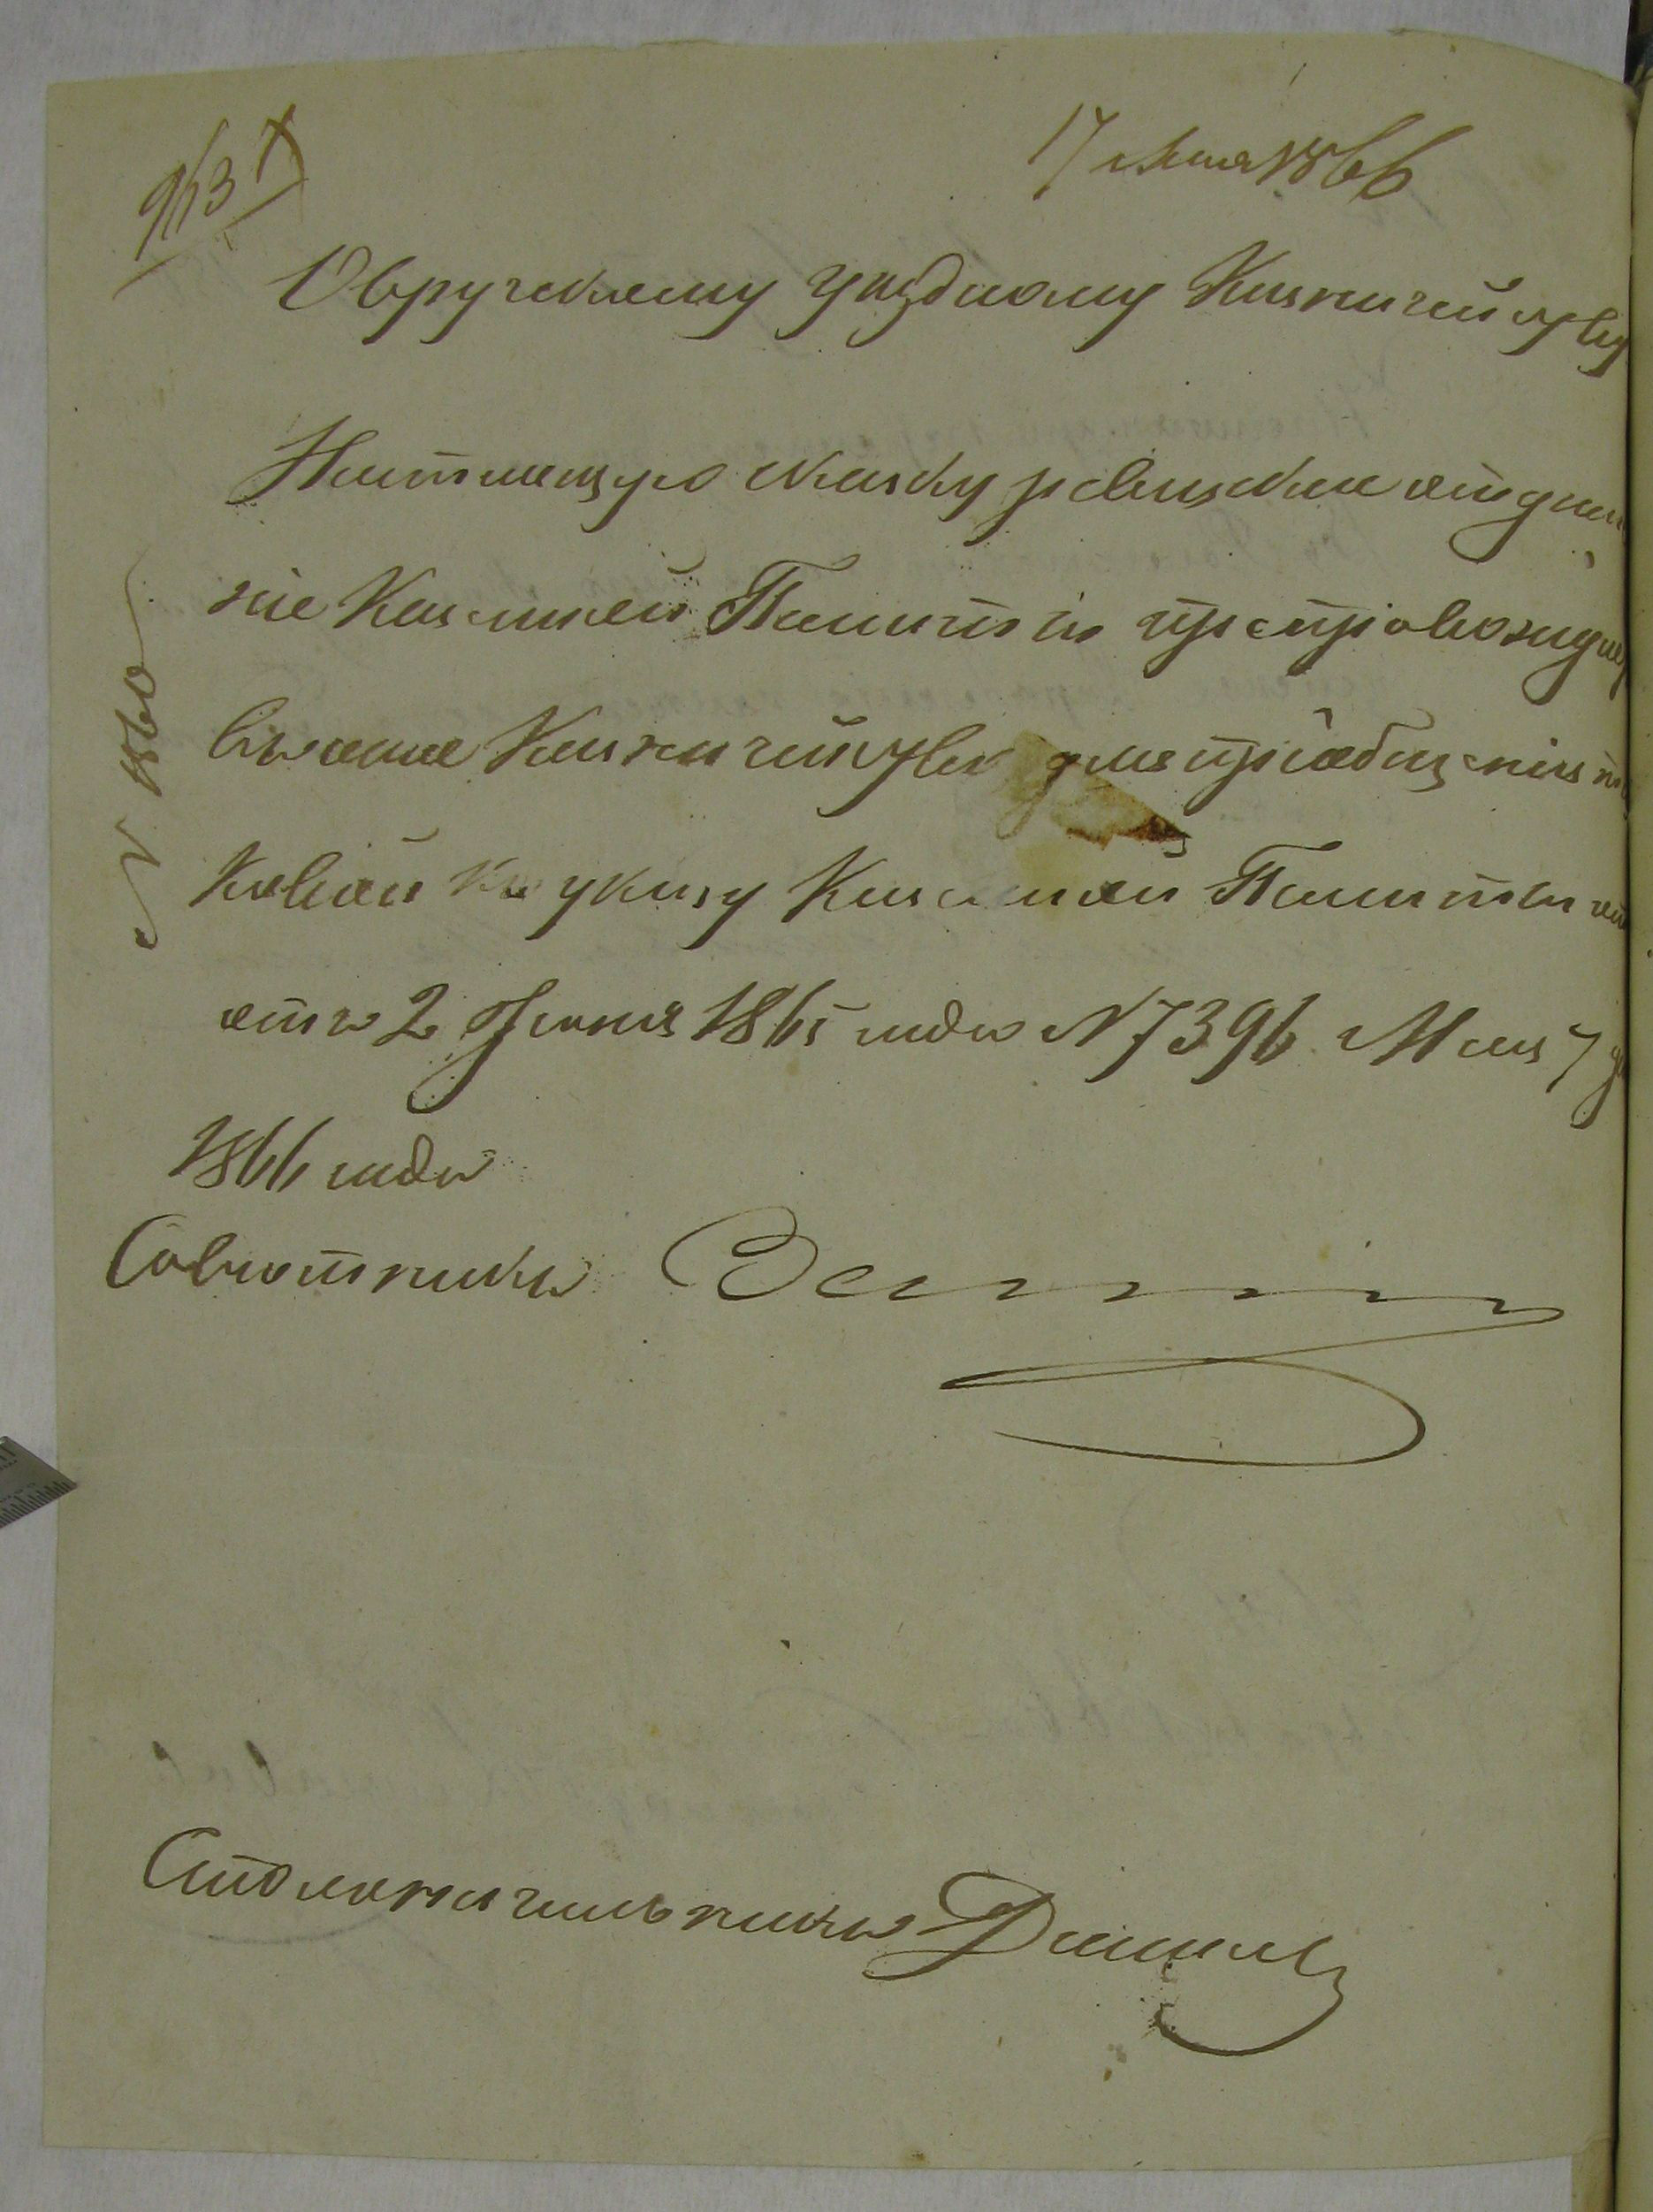 913
17 Мая 1866
Овручскому Уѣздному Казначейству
Настоящую сказку ревизское отдѣле
ніе Казенной Палаты препровожда
въ оное Казначейство для пріобщенія т
Ковой къ указу Казенной Палаты
отъ 2 Іюня 1865 года N 7396 Мая 7 д
1866 года
N 1860
Совѣтникъ
Столоначальникъ